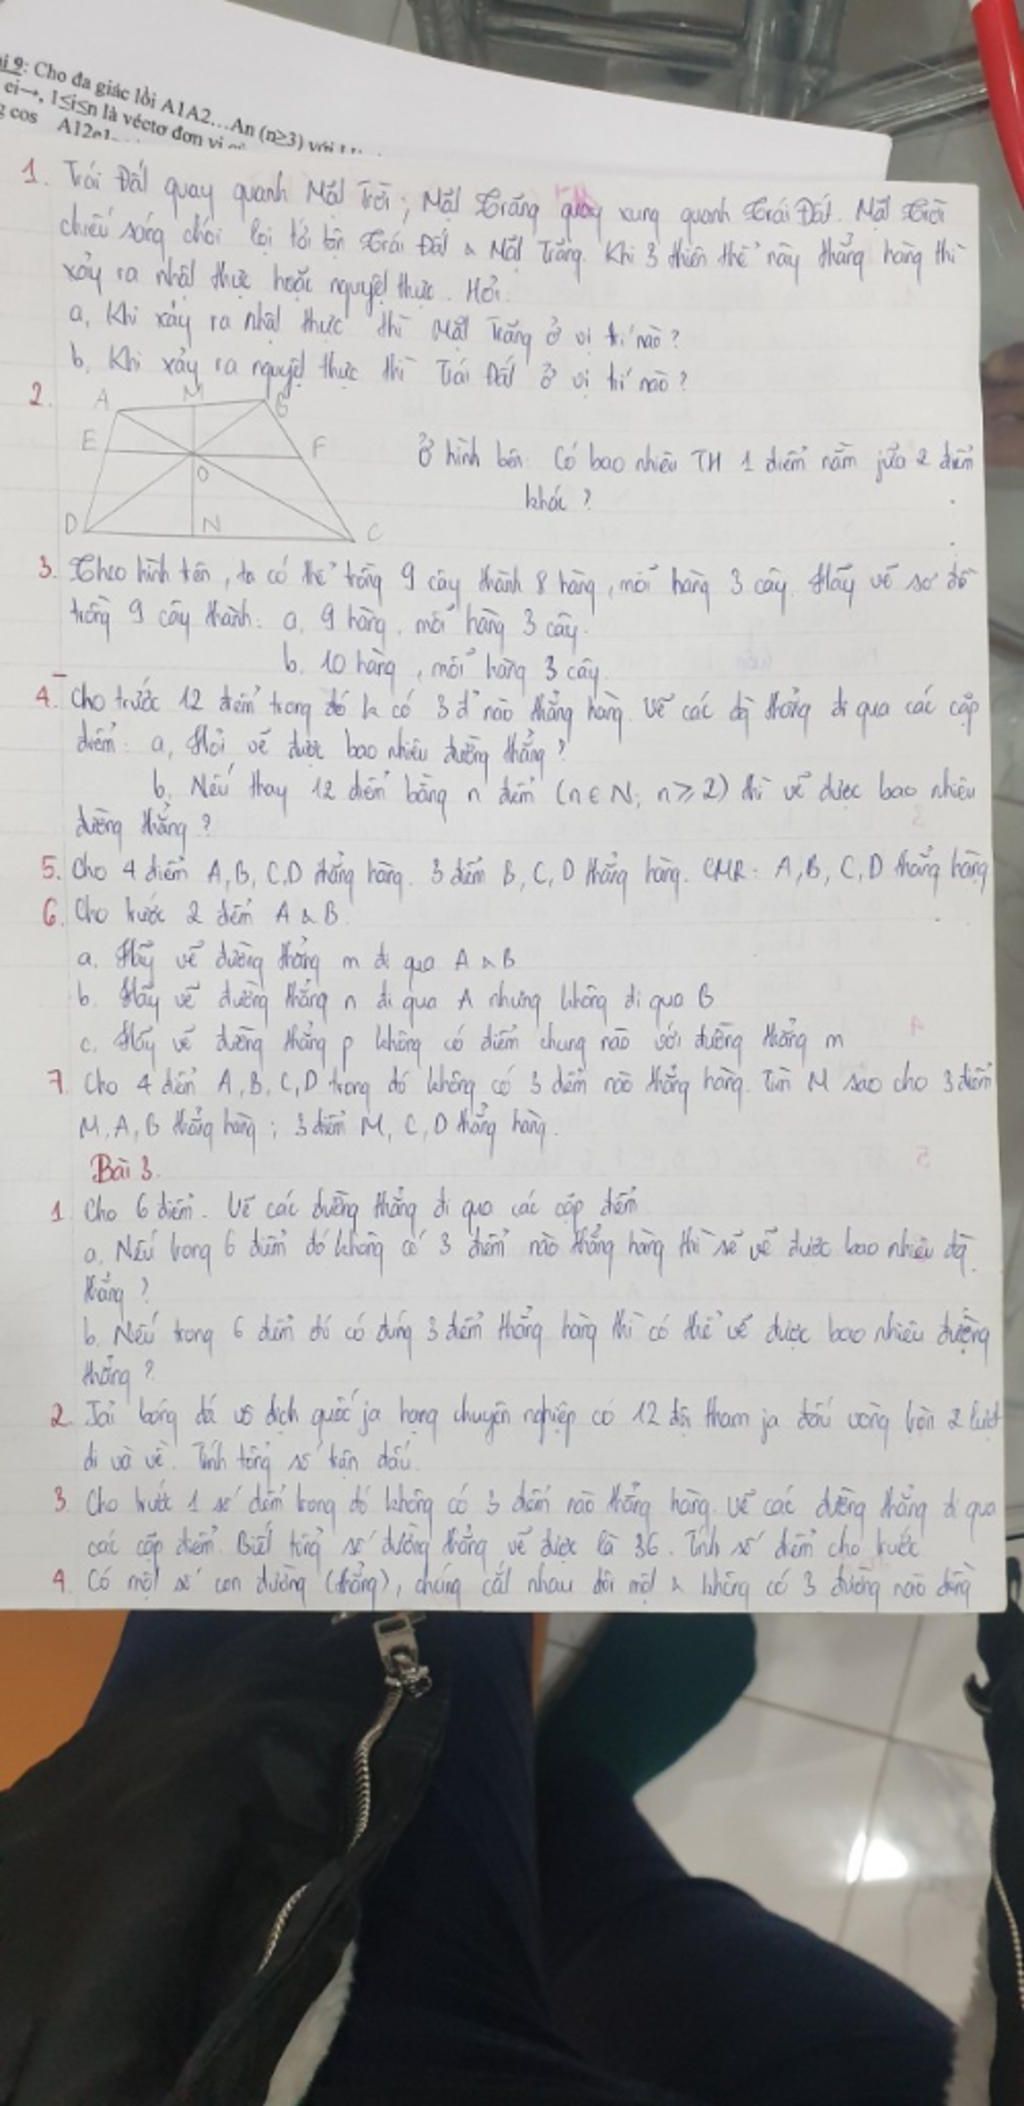 i 9: Cho đa giác lồi A1A2...An (n≥3) với
ei→, 1≤i≤n là véctơ đơn vị
cos A12
1. Trái Đất quay quanh Mặt Trời; Mặt Trăng quay xung quanh Trái Đất. Mặt Trời
chiếu sáng chói lọi tới bên Trái Đất & Mặt Trăng. Khi 3 thiên thể này thẳng hàng thì
xảy ra nhật thực hoặc nguyệt thực. Hỏi:
a, Khi xảy ra nhật thực thì Mặt Trăng ở vị trí nào?
b, Khi xảy ra nguyệt thực thì Trái Đất ở vị trí nào?
2. A M B
E F
O
D N C
Ở hình bên: Có bao nhiêu TH 1 điểm nằm jữa 2 điểm
khác?
3. Theo hình trên, ta có thể trồng 9 cây thành 8 hàng, mỗi hàng 3 cây. Hãy vẽ sơ đồ
trồng 9 cây thành: a. 9 hàng, mỗi hàng 3 cây.
b. 10 hàng, mỗi hàng 3 cây.
4. Cho trước 12 điểm trong đó k có 3 đ' nào thẳng hàng. Vẽ các đg thẳng đi qua các cặp
điểm: a, Hỏi vẽ được bao nhiêu đường thẳng?
b. Nếu thay 12 điểm bằng n điểm (n∈N; n≥2) thì vẽ được bao nhiêu
đường thẳng?
5. Cho 4 điểm A,B,C,D thẳng hàng. 3 điểm B,C,D thẳng hàng. CMR: A,B,C,D thẳng hàng
6. Cho trước 2 điểm A & B.
a. Hãy vẽ đường thẳng m đi qua A & B
b. Hãy vẽ đường thẳng n đi qua A nhưng không đi qua B
c. Hãy vẽ đường thẳng p không có điểm chung nào với đường thẳng m
7. Cho 4 điểm A,B,C,D trong đó không có 3 điểm nào thẳng hàng. Tìm M sao cho 3 điểm
M,A,B thẳng hàng; 3 điểm M,C,D thẳng hàng.
Bài 3.
1. Cho 6 điểm. Vẽ các đường thẳng đi qua các cặp điểm
a. Nếu trong 6 điểm đó không có 3 điểm nào thẳng hàng thì sẽ vẽ được bao nhiêu đg
thẳng?
b. Nếu trong 6 điểm đó có đúng 3 điểm thẳng hàng thì có thể vẽ được bao nhiêu đường
thẳng?
2. Jải bóng đá vô địch quốc ja hạng chuyên nghiệp có 12 đội tham ja đấu vòng tròn 2 lượt
đi và về. Tính tổng số trận đấu.
3. Cho trước 1 số điểm trong đó không có 3 điểm nào thẳng hàng. Vẽ các đường thẳng đi qua
các cặp điểm. Biết tổng số đường thẳng vẽ được là 36. Tính số điểm cho trước.
4. Có một số con đường (thẳng), chúng cắt nhau đôi một & không có 3 đường nào đồng